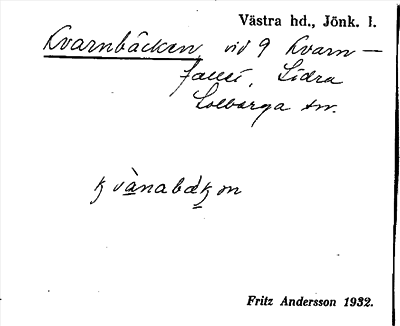 Västra hd., Jönk. l.
Kvarnbäcken vid 9 Kvarn—
Södra
Solberga sn.
kvànabàkən
Fritz Andersson 1932.